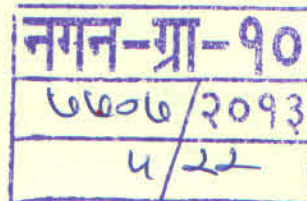 नगन-ग्रा-१०
७७०७/२०१३
५/२२